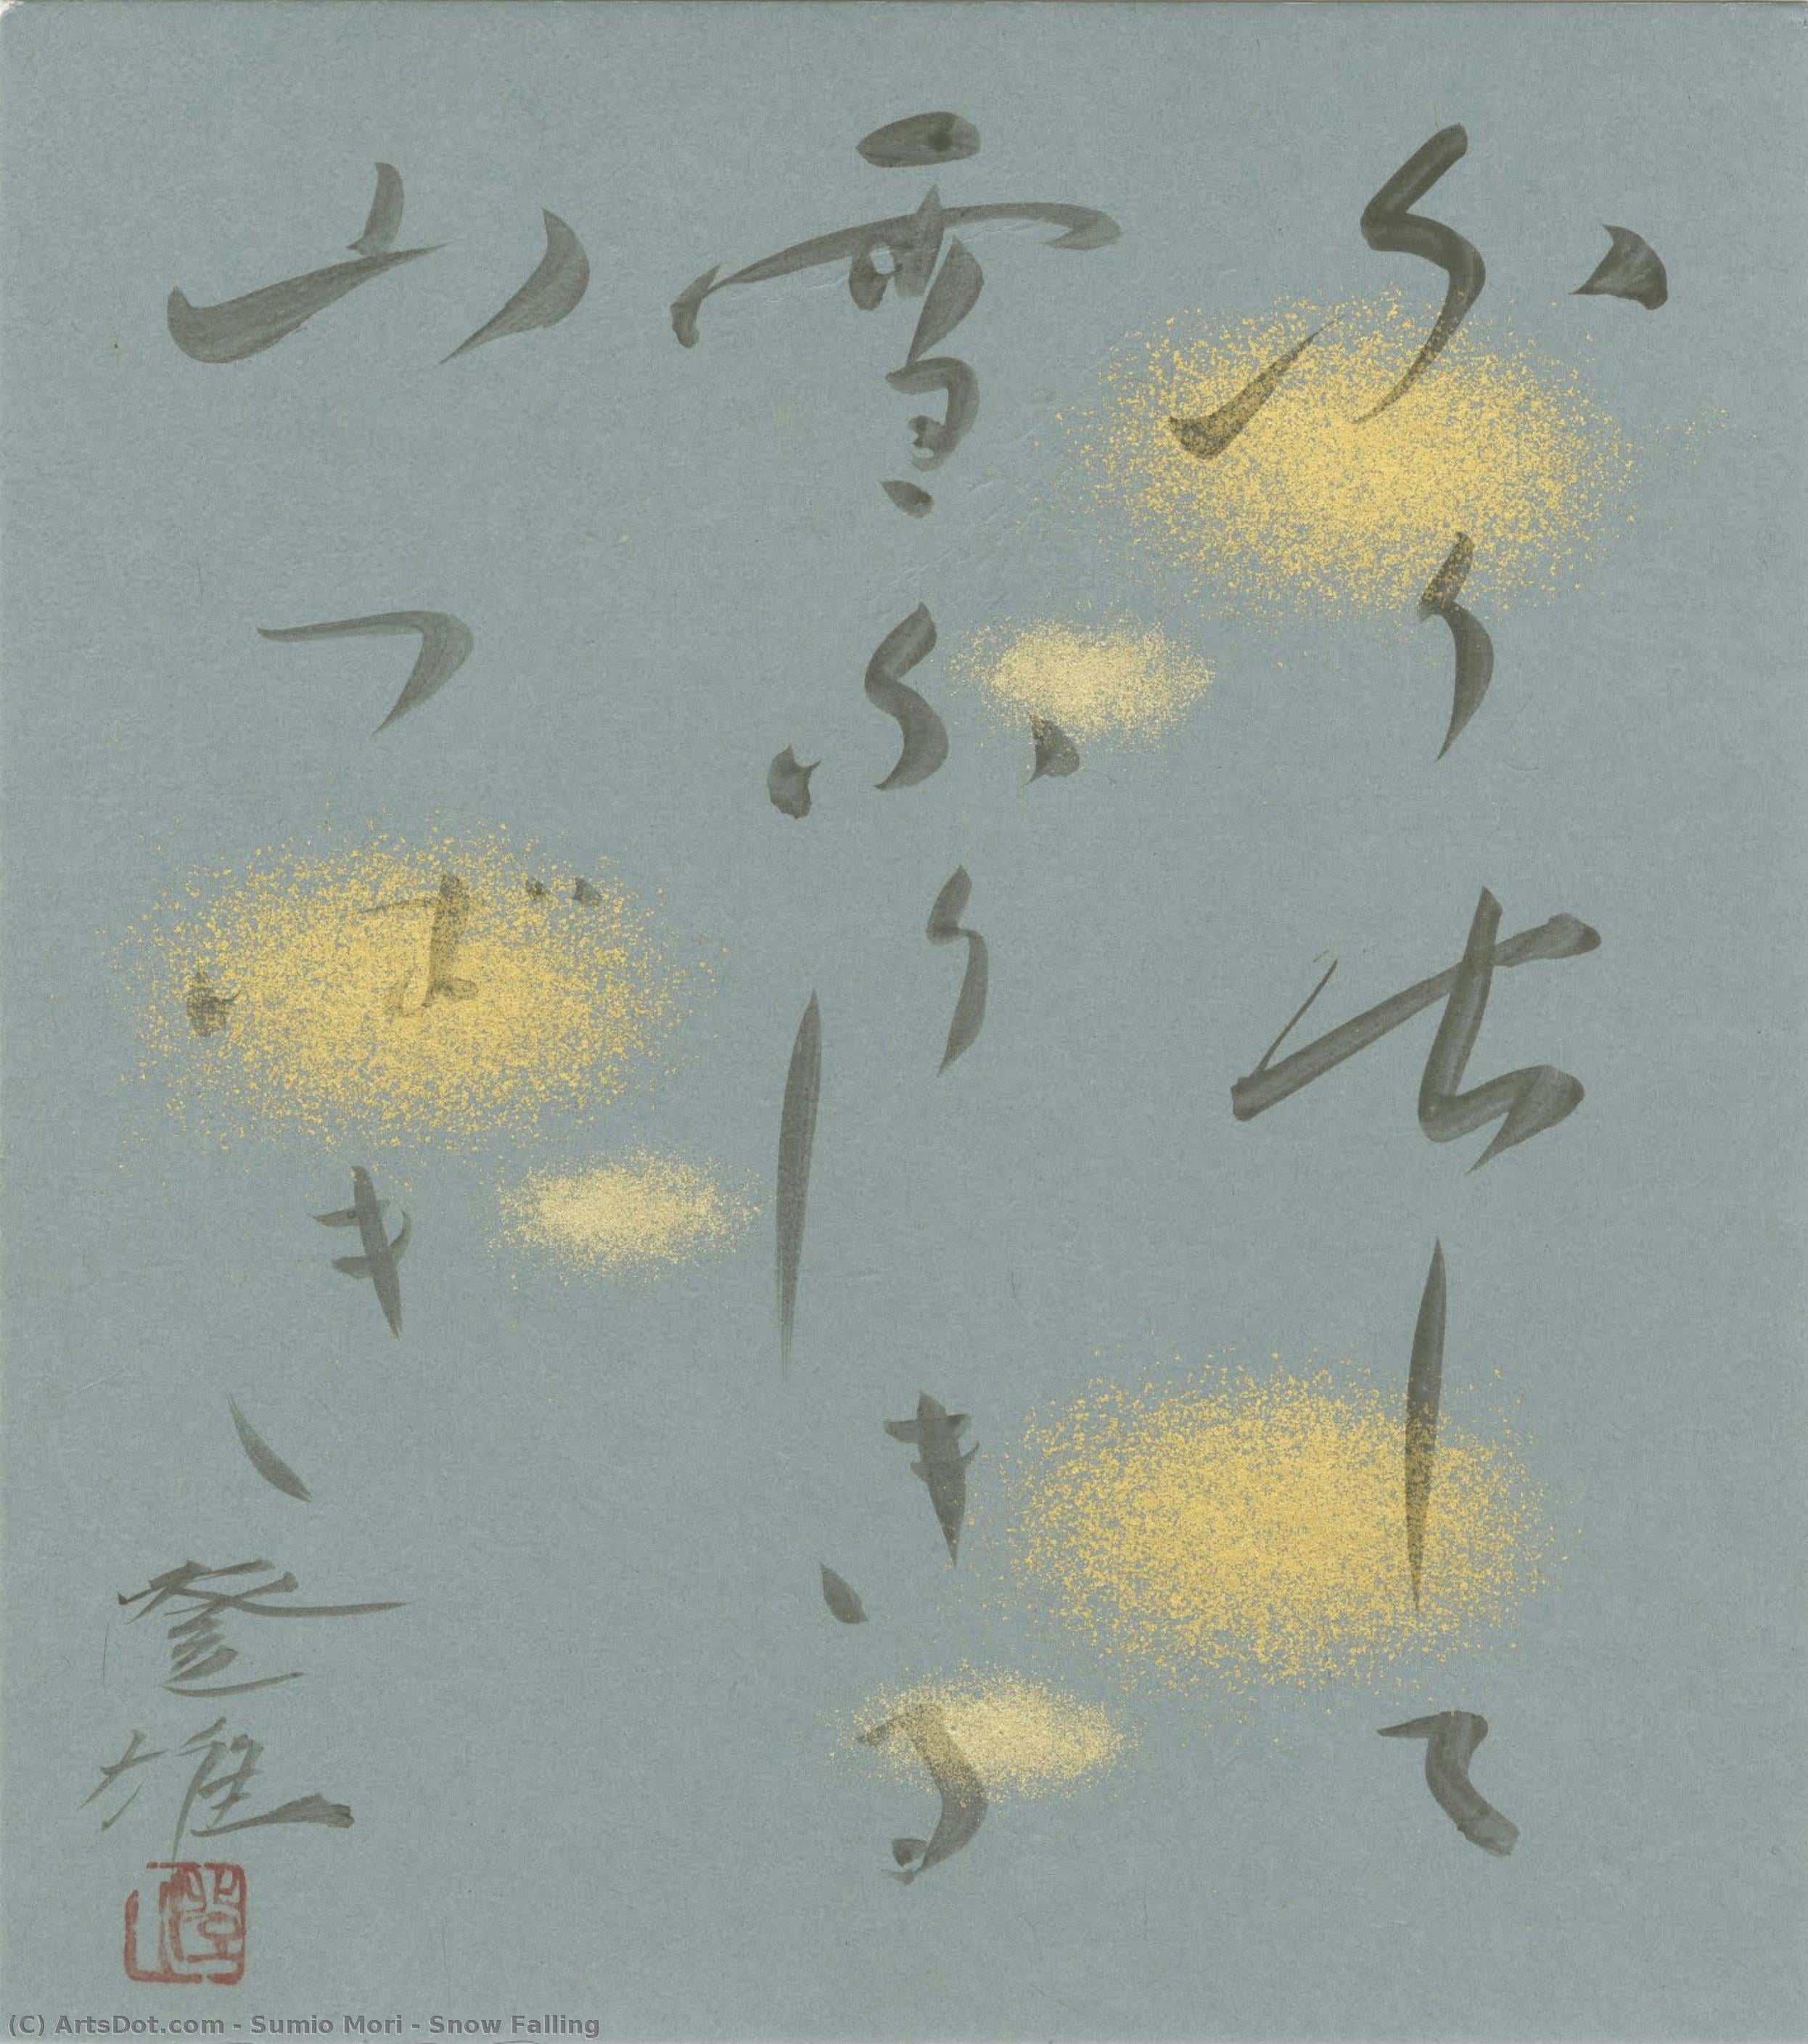 ふり出して
雪ふりしきる
山つばき
澄雄
(C) ArtsDot.com - Sumio Mori - Snow Falling